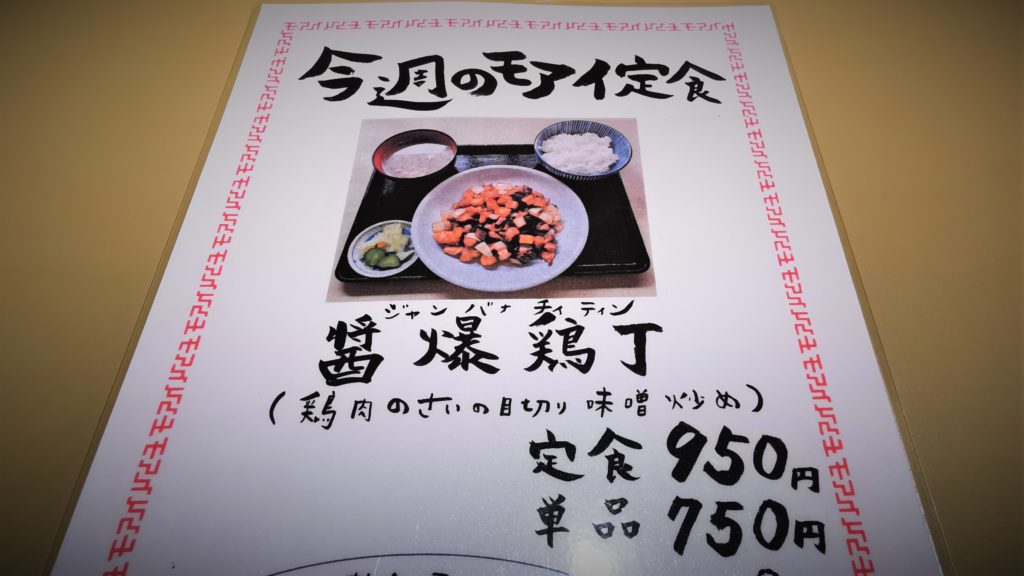 今週のモアイ定食
ジャン バオ チィ ティン
醤爆鶏丁
(鶏肉のさいの目切り味噌炒め)
定食 950円
単品 750円